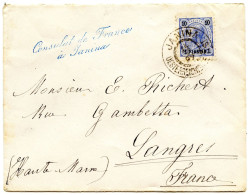 10 10
1 PIASTRE
JANINA
Consulat de France
à Janina
Monsieur E. Richert
Rue Gambetta
Langres
(Haute Marne)
France